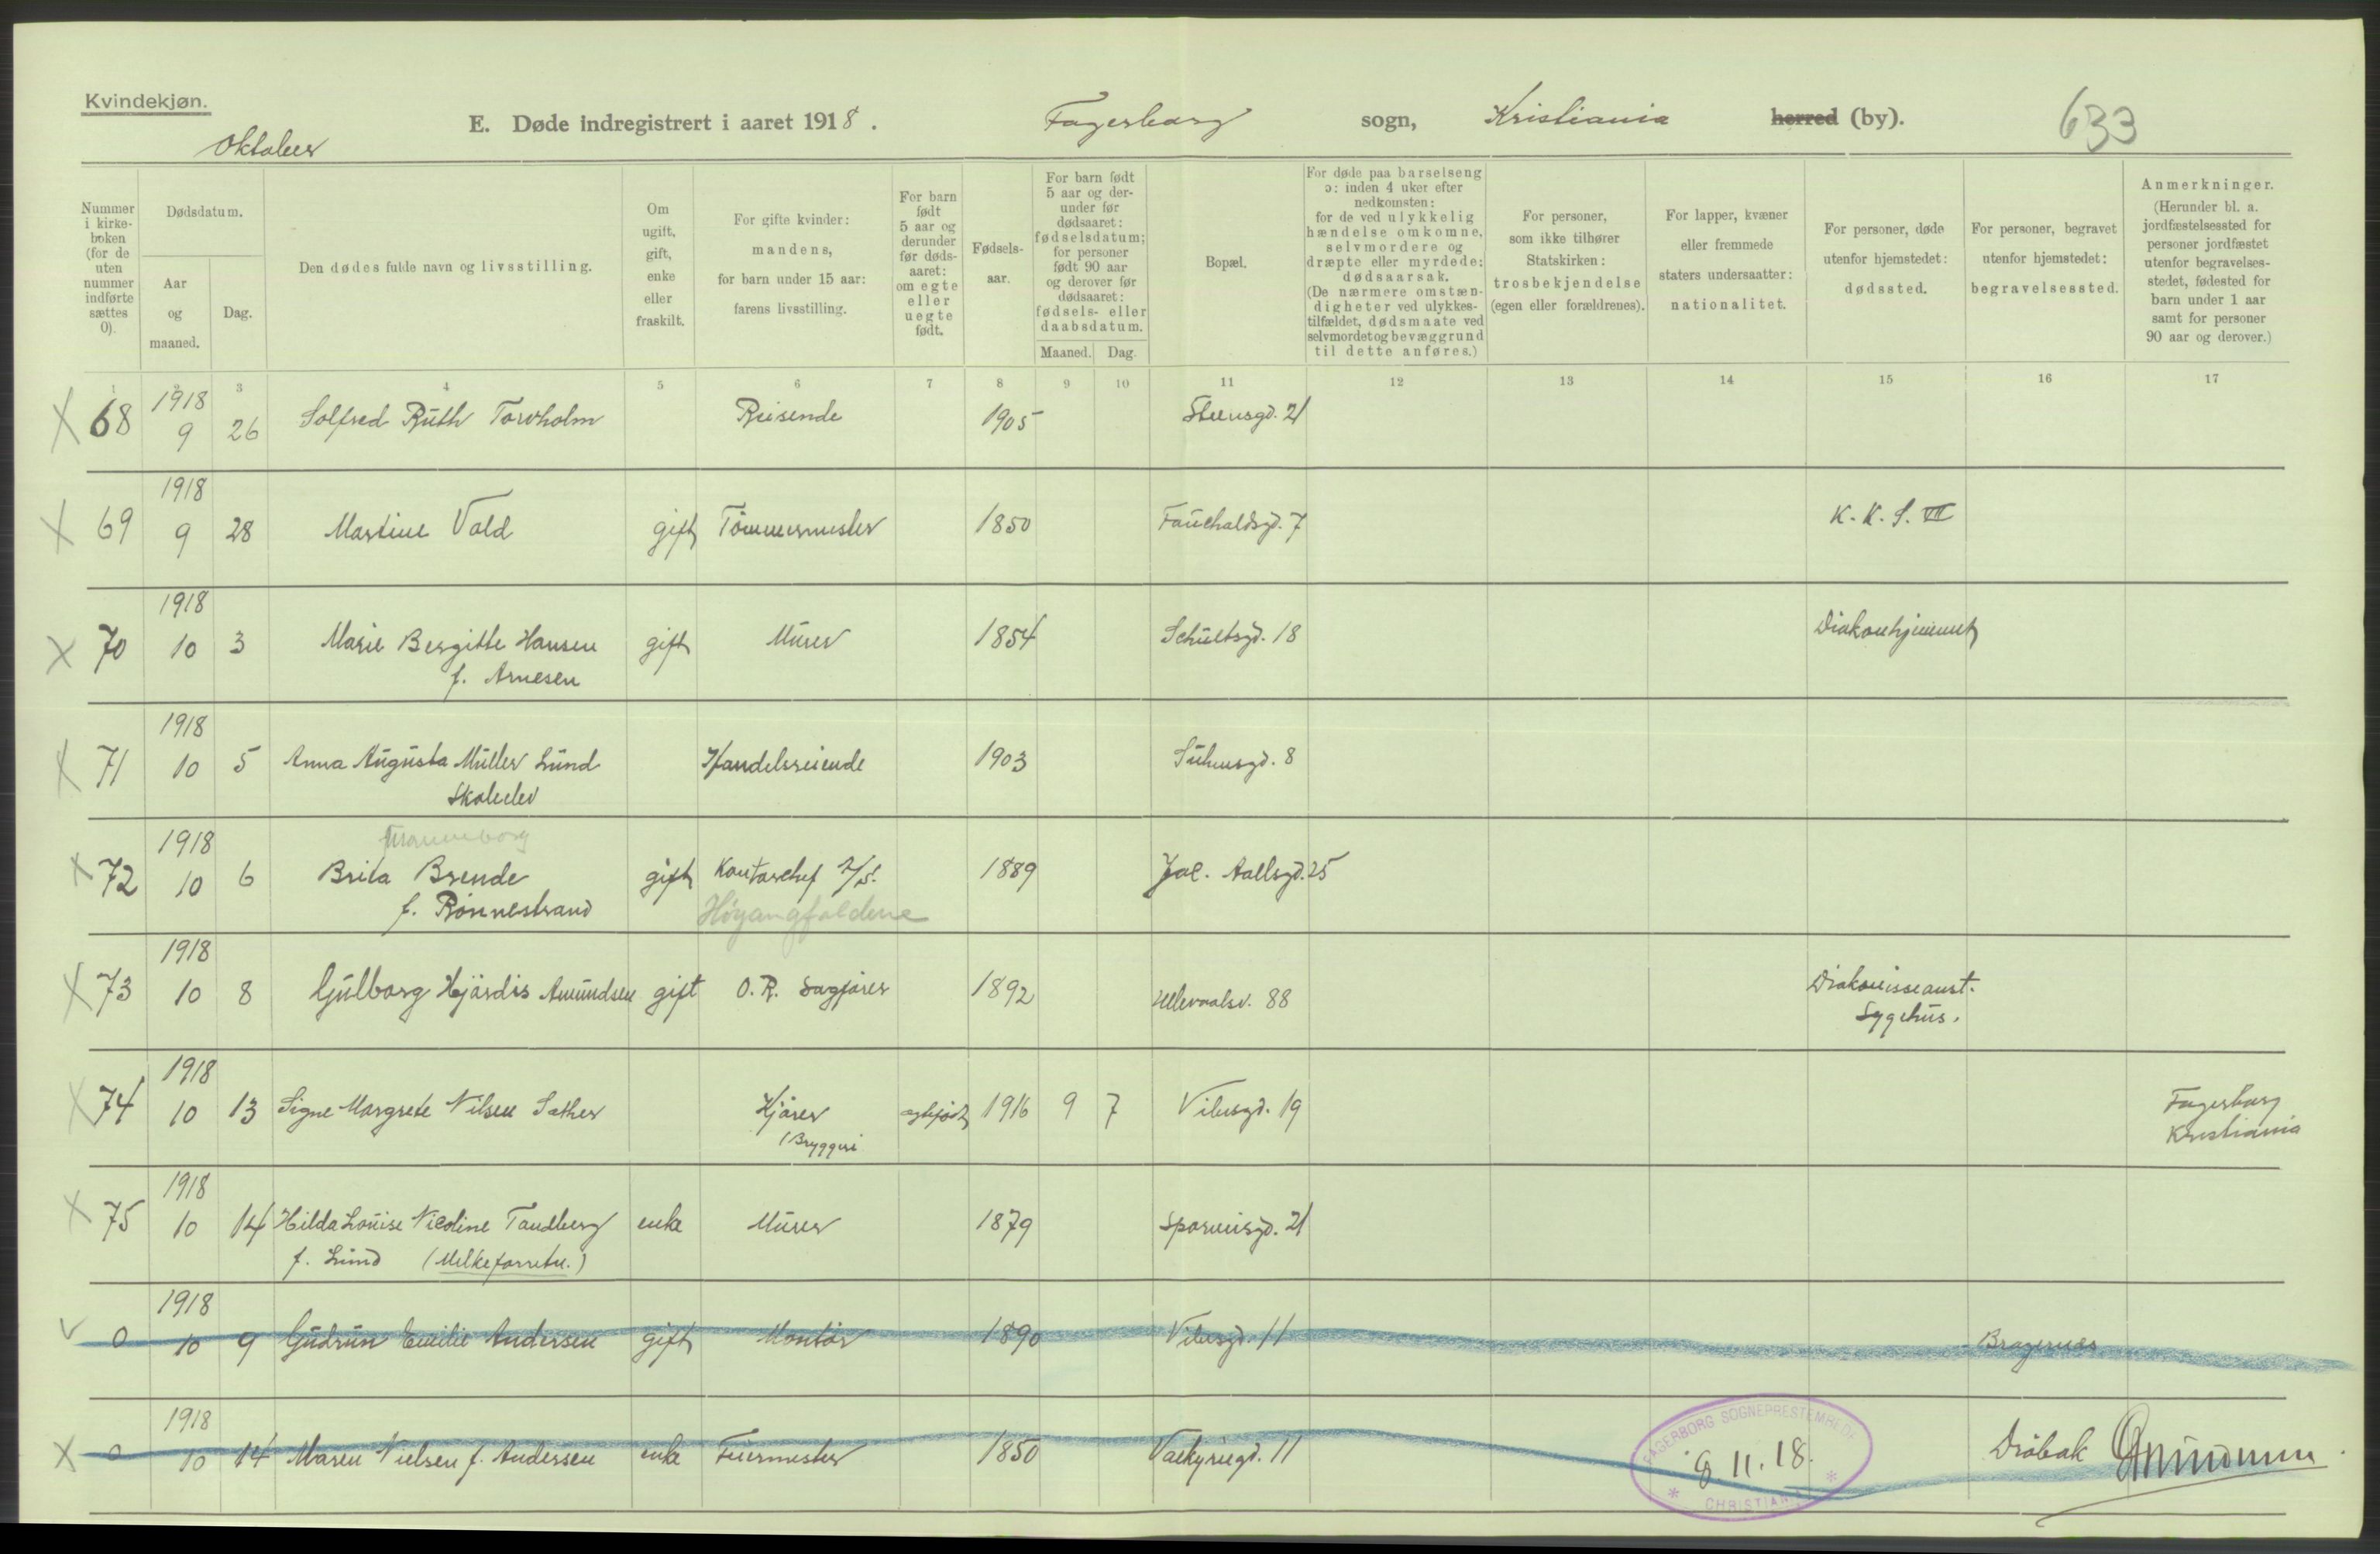 Kvindekjøn.
Oktober
E. Døde indregistrert i aaret 1918.
Fagerborg sogn, Kristiania herred (by).
633
Nummer i kirke-boken (for de uten nummer indførte sættes 0).
Dødsdatum.
Aar og maaned.
Dag.
Den dødes fulde navn og livsstilling.
Om ugift, gift, enke eller fraskilt.
For gifte kvinder: mandens, for barn under 15 aar: farens livsstilling.
For barn født 5 aar og derunder før døds-aaret: om egte eller uegte født.
Fødsels-aar.
For barn født 5 aar og der-under før dødsaaret: fødselsdatum; for personer født 90 aar og derover før dødsaaret: fødsels- eller daabsdatum.
Maaned. Dag.
Bopæl.
For døde paa barselseng ɔ: inden 4 uker efter nedkomsten: for de ved ulykkelig hændelse omkomne, selvmordere og dræpte eller myrdede: dødsaarsak. (De nærmere omstæn-digheter ved ulykkes-tilfældet, dødsmaate ved selvmordet og bevæggrund til dette anføres.)
For personer, som ikke tilhører Statskirken: trosbekjendelse (egen eller forældrenes).
For lapper, kvæner eller fremmede staters undersaatter: nationalitet.
For personer, døde utenfor hjemstedet: dødssted.
For personer, begravet utenfor hjemstedet: begravelsessted.
Anmerkninger. (Herunder bl. a. jordfæstelsessted for personer jordfæstet utenfor begravelses-stedet, fødested for barn under 1 aar samt for personer 90 aar og derover.)
1 2 3 4 5 6 7 8 9 10 11 12 13 14 15 16 17
X 68 1918 9 26 Solfred Ruth Torvholm Reisende 1905 Steensgd. 21
X 69 1918 9 28 Martine Vold gift Tömmermester 1850 Fauchaldsgd. 7 K. K. S. VII
X 70 1918 10 3 Marie Bergitte Hansen gift Murer 1854 Schultsgd. 18 Diakonhjemmet
f. Arnesen
X 71 1918 10 5 Anna Augusta Müller Lund Handelsreiende 1903 Suhmsgd. 8
Skoleelev
X 72 1918 10 6 Brita Brende gift Kontorchef A/S. 1889 Jac. Aallsgd. 25
f. Rönnestrand Höyangfaldene
X 73 1918 10 8 Gulborg Hjördis Amundsen gift O. R. Sagfører 1892 Ullevaalsv. 88 Diakonisseanst.
Sygehus.
X 74 1918 10 13 Signe Margrete Nilsen Sæther Kjører egtefødt 1916 9 7 Vibesgd. 19 Fagerborg
(Bryggeri Kristiania
X 75 1918 10 14 Hilda Louise Nicoline Tandberg enke Murer 1879 Sporveisgd. 21
f. Lund (Melkeforretn.)
V 0 1918 10 9 Gudrun Emilie Andersen gift Montör 1890 Vibesgd. 11 Bragernes
X 0 1918 10 14 Maren Nielsen f. Andersen enke Feiermester 1850 Valkyriegd. 11 Dröbak
FAGERBORG SOGNEPRESTEMBEDE
8.11.18.
* CHRISTIANIA *